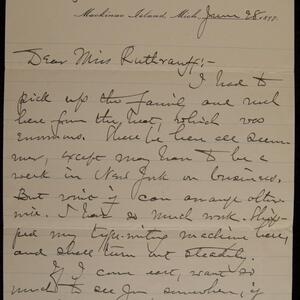 Mackinac Island, Mich. June 28 1897.
Dear Miss Ruthrauff:-
I had to
pick up the family and rush
here from the heat, which was
enormous. Shall be here all summer,
except may have to be a
week in New York on business.
But won't if I can arrange otherwise.
I have so much work. Shipped
my type-writing machine here,
and shall turn out steadily.
If I come east, want so
much to see you somewhere, if